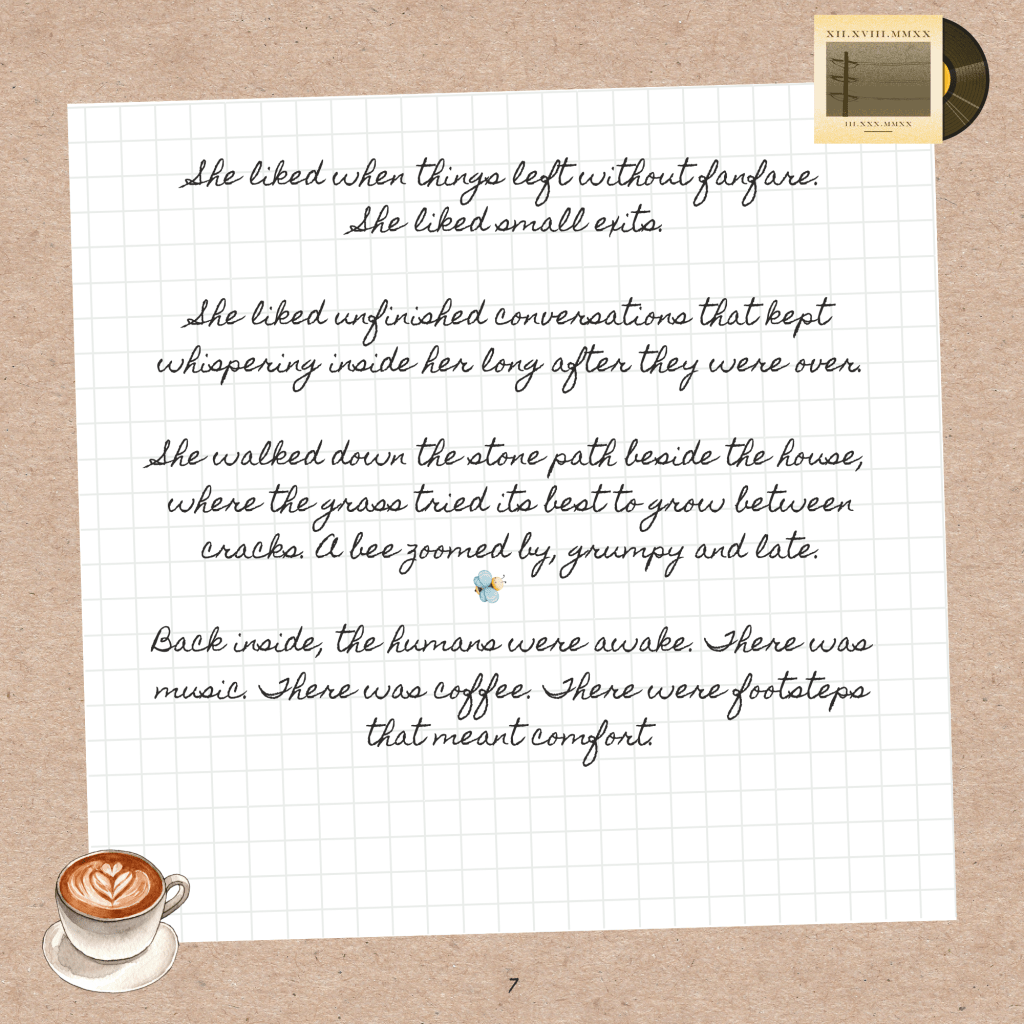 XII.XVIII.MMXX
III.XXX.MMXX
She liked when things left without fanfare.
She liked small exits.
She liked unfinished conversations that kept
whispering inside her long after they were over.
She walked down the stone path beside the house,
where the grass tried its best to grow between
cracks. A bee zoomed by, grumpy and late.
Back inside, the humans were awake. There was
music. There was coffee. There were footsteps
that meant comfort.
7